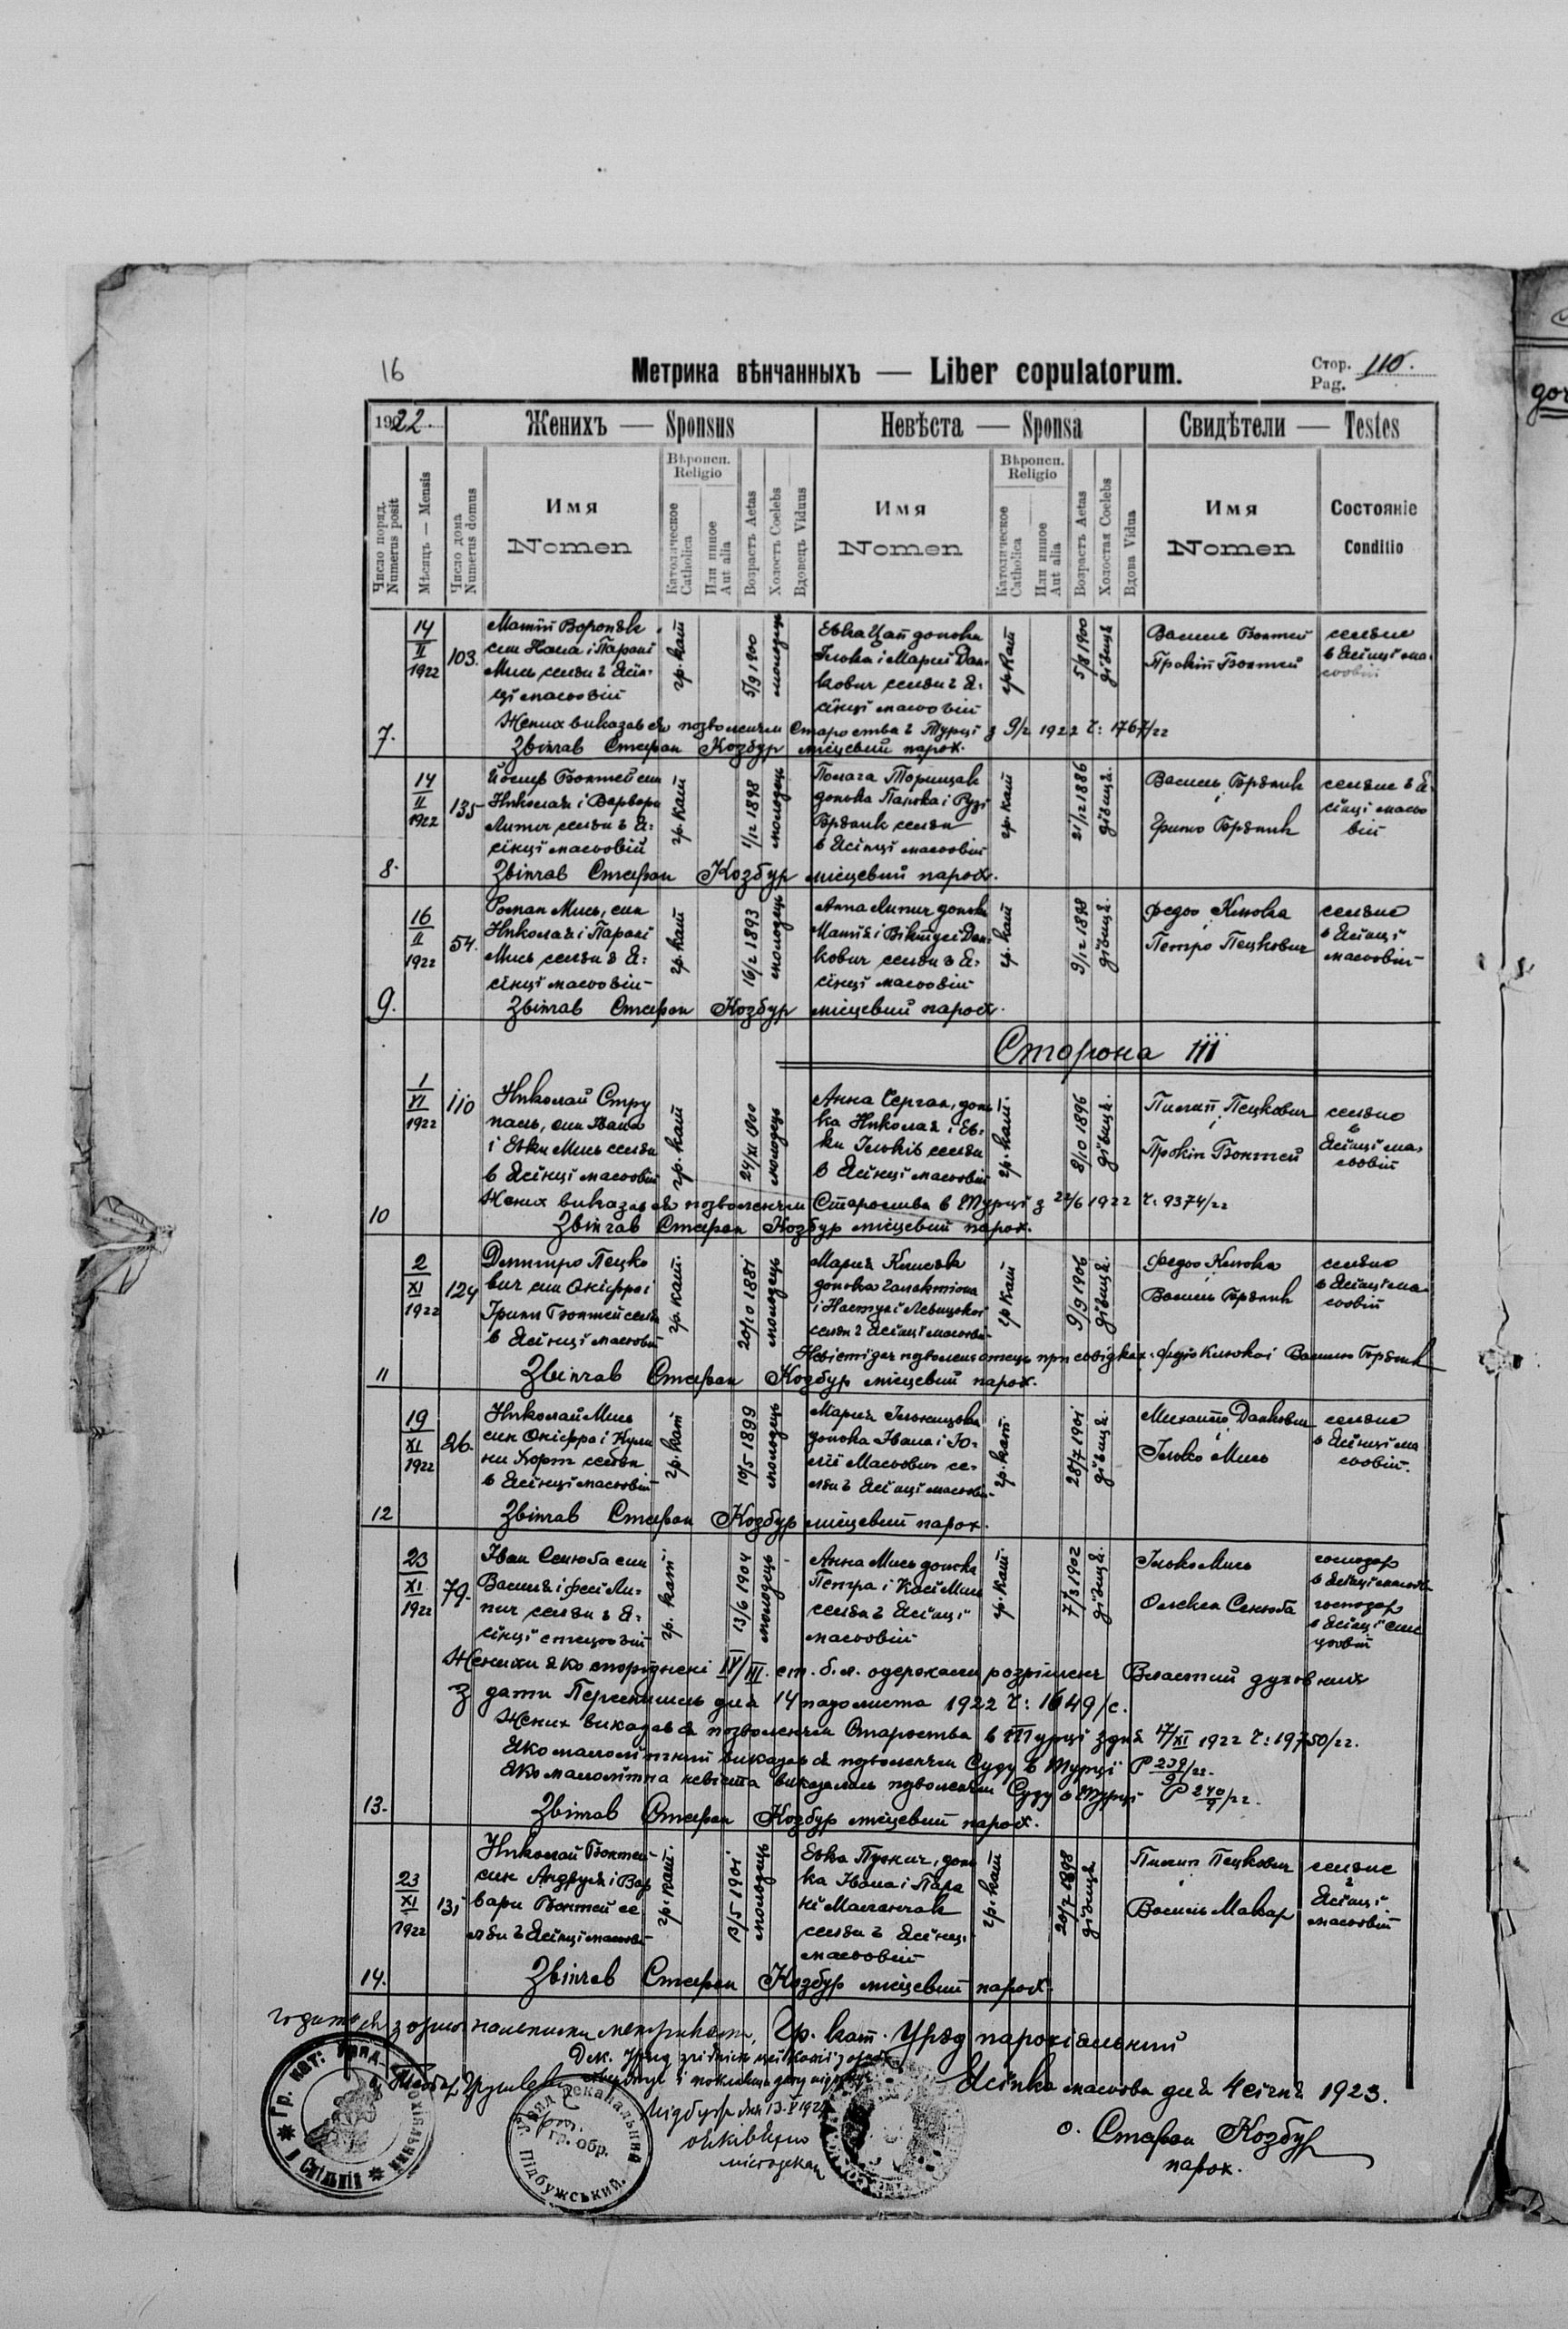 16
Метрика вѣнчанныхъ — Liber copulatorum.
Стор. Pag. 110.
1922.
Женихъ — Sponsus
Невѣста — Sponsa
Свидѣтели — Testes
Число поряд. Numerus posit
Мѣсяцъ — Mensis
Число дома Numerus domus
Имя Nomen
Вѣроисп. Religio
Католическое Catholica
Или инное Aut alia
Возрастъ Aetas
Холостъ Coelebs
Вдовецъ Viduus
Имя Nomen
Вѣроисп. Religio
Католическое Catholica
Или инное Aut alia
Возрастъ Aetas
Холостая Coelebs
Вдова Vidua
Имя Nomen
Состояніе Conditio
7.
14 II 1922
103.
Матій Вороняк
син Ивана і Парані
Мись селян в Ясін-
ці масьовій
гр. кат
5/9 1900
молодець
Евка Цап донька
Ілька і Марії Дань-
кович селян в Я-
сінці масьовій
гр кат
5/8 1900
дівиця
Василь Боктей
Прокіп Боктей
селяне
в Ясінці ма-
сьовій
Жених виказався позволенєм Староства в Турці з 9/2 1922 ч: 1767/22
Звінчав Стефан Козбур місцевий парох.
8.
14 II 1922
135
Йосиф Боктей син
Николая і Варвари
Липич селян в Я-
сінці масьовій
гр. кат
1/12 1898
молодець
донька Панька і Рузі
Бряник селян
в Ясінці масьовій
гр. кат
21/12 1886
дівиця.
Василь Бряник
і
Грицько Бряник
селяне в Я-
сінці масьо
вій
Звінчав Стефан Козбур місцевий парох.
9.
16 II 1922
54.
Роман Мись, син
Николая і Парані
Мись селян в Я-
сінці масьовій
гр. кат
16/2 1893
молодець
Анна Липич донька
Матія і Вікторії Дань-
кович селян в Я-
сінці масьовій
гр. кат
9/12 1898
дівиця.
Федьо Клюка
і
Петро Пецкович
селяне
в Ясінці
масьовій
Звінчав Стефан Козбур місцевий парох.
Сторона III
10
1 XI 1922
110
Николай Стру
пась, син Івана
і Евки Мись селян
в Ясінці масьовій
гр. кат
24/XI 1900
молодець
Анна Серган, донь
ка Николая і Ев-
ки Ільків селян
в Ясінці масьовій
гр. кат.
8/10 1896
дівиця.
Пилип Пецкович
і
Прокіп Боктей
селяне
в
Ясінці ма-
сьовій
Жених виказався позволенєм Староства в Турці з 22/6 1922 ч: 9374/22
Звінчав Стефан Козбур місцевий парох.
11
2 XI 1922
124
Дмитро Пецко
вич син Онісфра і
Ірини Боктей селян
в Ясінці масьовій
гр. кат.
20/10 1881
молодець
Мария Клисяк
донька Галактіона
і Настуні Левицької
селян в Ясінці масьовій
гр кат
9/9 1906
дівиця.
Федьо Клюка
і
Василь Бряник
селяне
в Ясінці ма-
сьовій
Звінчав Стефан Козбур місцевий парох.
12
19 XI 1922
26.
Николай Мись
син Онісфра і Кули
ни Корт селян
в Ясінці масьовій
гр. кат
10/5 1899
молодець
донька Івана і Ю-
лії Масьович се-
лян в Ясінці масьовій
гр. кат.
28/7 1901
дівиця.
Михайло Данкович
і
Ілько Мись
селяне
в Ясінці ма
сьовій.
Звінчав Стефан Козбур місцевий парох.
13.
23 XI 1922
79.
Іван Сенюба син
Василя і Феси Ли-
пич селян в Я-
сінці стецьовій
гр. кат
13/6 1904
молодець
Анна Мись донька
Петра і Касі Мись
селян в Ясінці
масьовій
гр. кат.
7/3 1902
дівиця.
Ілько Мись
Олекса Сенюба
господар
в Ясінці масьовій
господар
в Ясінці сте
цьовій
Женихи яко споріднені IV/III. ст. б. л. одержали розрішенє Властий духовних
з дати Перемишль дня 14 падолиста 1922 ч: 1649/с.
Жених виказався позволенєм Староства в Турці з дня 17/XI 1922 ч: 19750/22.
Яко малолітний виказався позволенєм Суду в Турці P 239/9/22.
Яко малолітна невіста виказалась позволенєм Суду в Турці P 240/9/22.
Звінчав Стефан Козбур місцевий парох.
14.
23 XI 1922
131
Николай Боктей
син Андрея і Вар
вари Боктей се
лян в Ясінці масьовій
гр. кат.
13/5 1901
молодець
Евка Пукич, донь
ка Івана і Пара
нї
селян в Ясінці
масьовій
гр. кат
20/7 1898
дівиця
Пилип Пецкович
і
Василь Макар
селяне
в
Ясінці
масьовій
Звінчав Стефан Козбур місцевий парох.
Гр. кат. Уряд парохіяльний
Ясінка масьова дня 4 січня 1923.
о. Стефан Козбур
парох.
Підбуж дня 13.
Гр. кат. Уряд
Уряд Деканальный
гр. обр.
Підбужський.